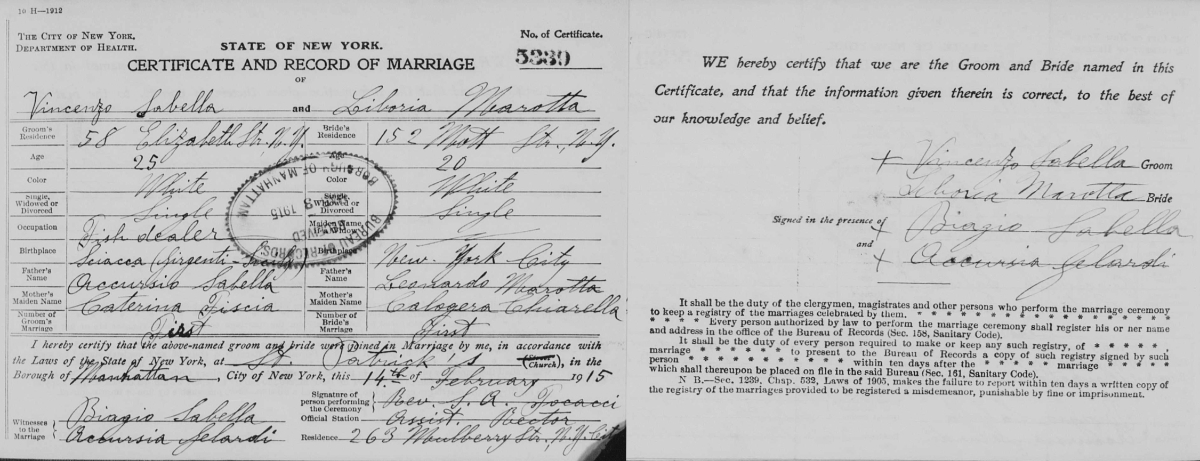 10 H—1912
THE CITY OF NEW YORK.
DEPARTMENT OF HEALTH.
STATE OF NEW YORK.
No. of Certificate.
5339
CERTIFICATE AND RECORD OF MARRIAGE
OF
Vincenzo Sabella and Liboria Marotta
Groom's Residence 58 Elizabeth Str. N.Y. Bride's Residence 152 Mott Str., N.Y.
Age 25 Age 20
Color White Color White
Single, Widowed or Divorced Single Single, Widowed or Divorced Single
Occupation Fish dealer Maiden Name, if a Widow
Birthplace Sciacca (Girgenti- Birthplace New York City
Father's Name Accursio Sabella Father's Name Leonardo Marotta
Mother's Maiden Name Caterina Fiscia Mother's Maiden Name Calogera Chiarella
Number of Groom's Marriage First Number of Bride's Marriage First
BOROUGH OF MANHATTAN
1915
BUREAU OF RECORDS
I hereby certify that the above-named groom and bride were joined in Marriage by me, in accordance with
the Laws of the State of New York, at St Patrick's (Church), in the
Borough of Manhattan, City of New York, this 14th of February 1915
Witnesses to the Marriage Biagio Sabella
Accursia Gelardi
Signature of person performing the Ceremony Rev. S. A.
Official Station Assist. Rector
Residence 263 Mulberry Str., N.Y.
WE hereby certify that we are the Groom and Bride named in this
Certificate, and that the information given therein is correct, to the best of
our knowledge and belief.
+ Vincenzo Sabella Groom
Liboria Marotta Bride
Signed in the presence of + Biagio Sabella
and + Accursia Gelardi
It shall be the duty of the clergymen, magistrates and other persons who perform the marriage ceremony
to keep a registry of the marriages celebrated by them. * * * * * * * * * * * * * * * *
* * * * Every person authorized by law to perform the marriage ceremony shall register his or her name
and address in the office of the Bureau of Records (Sec. 158, Sanitary Code).
It shall be the duty of every person required to make or keep any such registry, of * * * * *,
marriage * * * * * * to present to the Bureau of Records a copy of such registry signed by such
person * * * * * * * * * * within ten days after the * * * * marriage * * * * *
which shall thereupon be placed on file in the said Bureau (Sec. 161, Sanitary Code).
N B.—Sec. 1239, Chap. 532, Laws of 1905, makes the failure to report within ten days a written copy of
the registry of the marriages provided to be registered a misdemeanor, punishable by fine or imprisonment.